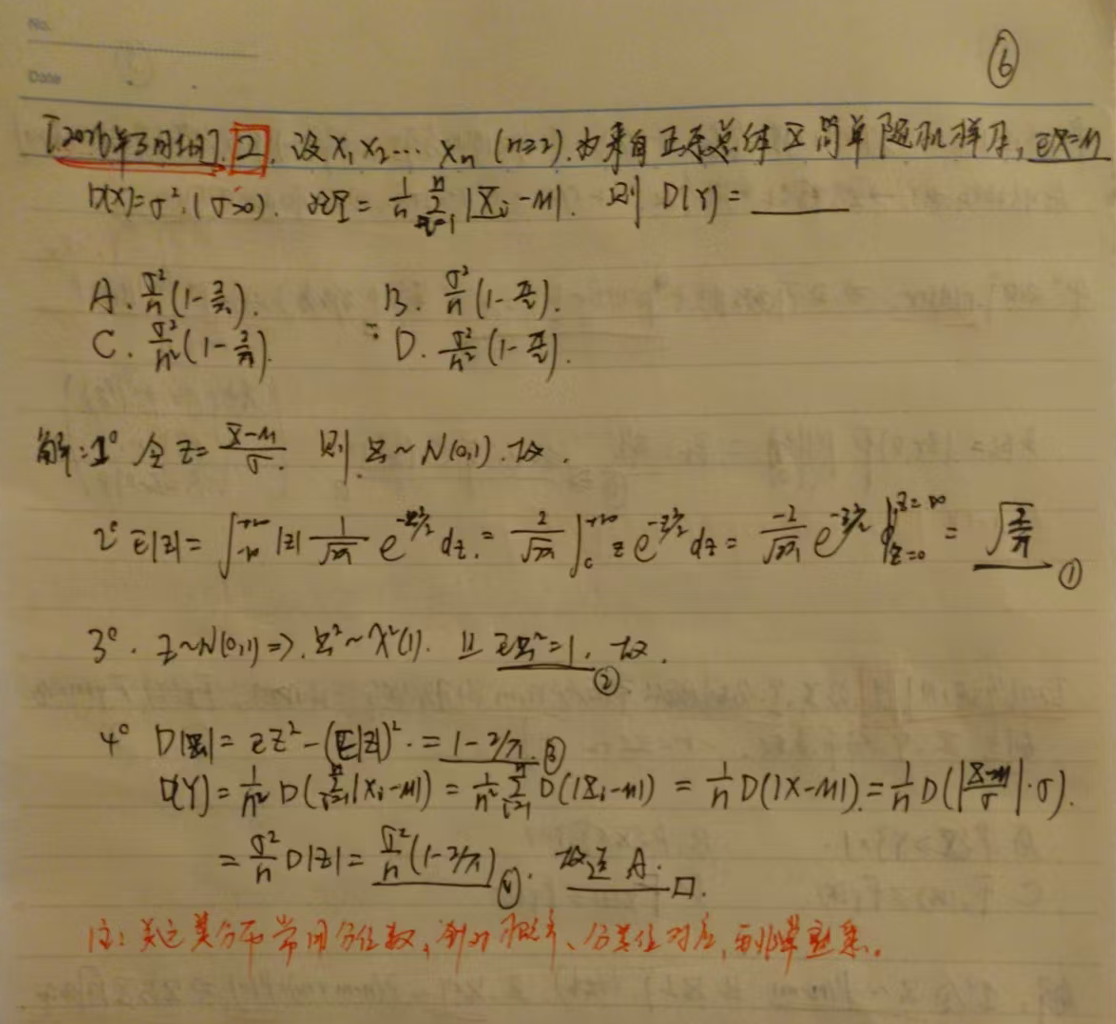 No.
Date
⑥
[2026年3月] 2. 设X₁ X₂… Xₙ (n≥2). 为来自正态总体X简单随机样本, EX=μ
D(X)=σ². (σ>0). 设Y= 1/n Σᵢ₌₁ⁿ |Xᵢ-μ|. 则 D(Y) = ______
A. σ²/n (1-2/π). B. σ²/n (1-π/2).
C. σ²/n² (1-2/π). D. σ²/n² (1-π/2).
解: 1° 令 Z= (X-μ)/σ. 则 Z~N(0,1). 故.
2° E|Z|= ∫₋∞⁺∞ |z| 1/√2π e^(-z²/2) dz. = 2/√2π ∫₀⁺∞ z e^(-z²/2) dz = -2/√2π e^(-z²/2) |z=0 z=∞ = √(2/π) ①
3°. Z~N(0,1) ⇒. Z²~χ²(1). 且 EZ²=1. 故. ②
4° D|Z| = EZ² - (E|Z|)². = 1-2/π ③
D(Y)= 1/n² D(Σᵢ₌₁ⁿ |Xᵢ-μ|) = 1/n² Σᵢ₌₁ⁿ D(|Xᵢ-μ|) = 1/n D(|X-μ|). = 1/n D(|(X-μ)/σ|·σ).
= σ²/n D|Z| = σ²/n (1-2/π) ④. 故选 A. □.
注: 分布常用分位数, 对应,